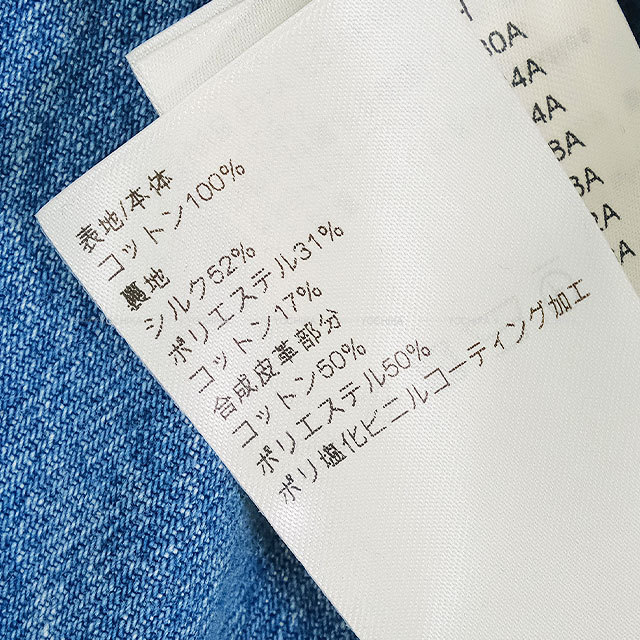 表地/本体
コットン100%
裏地
シルク52%
ポリエステル31%
コットン17%
合成皮革部分
コットン50%
ポリエステル50%
ポリ塩化ビニルコーティング加工
4A
4A